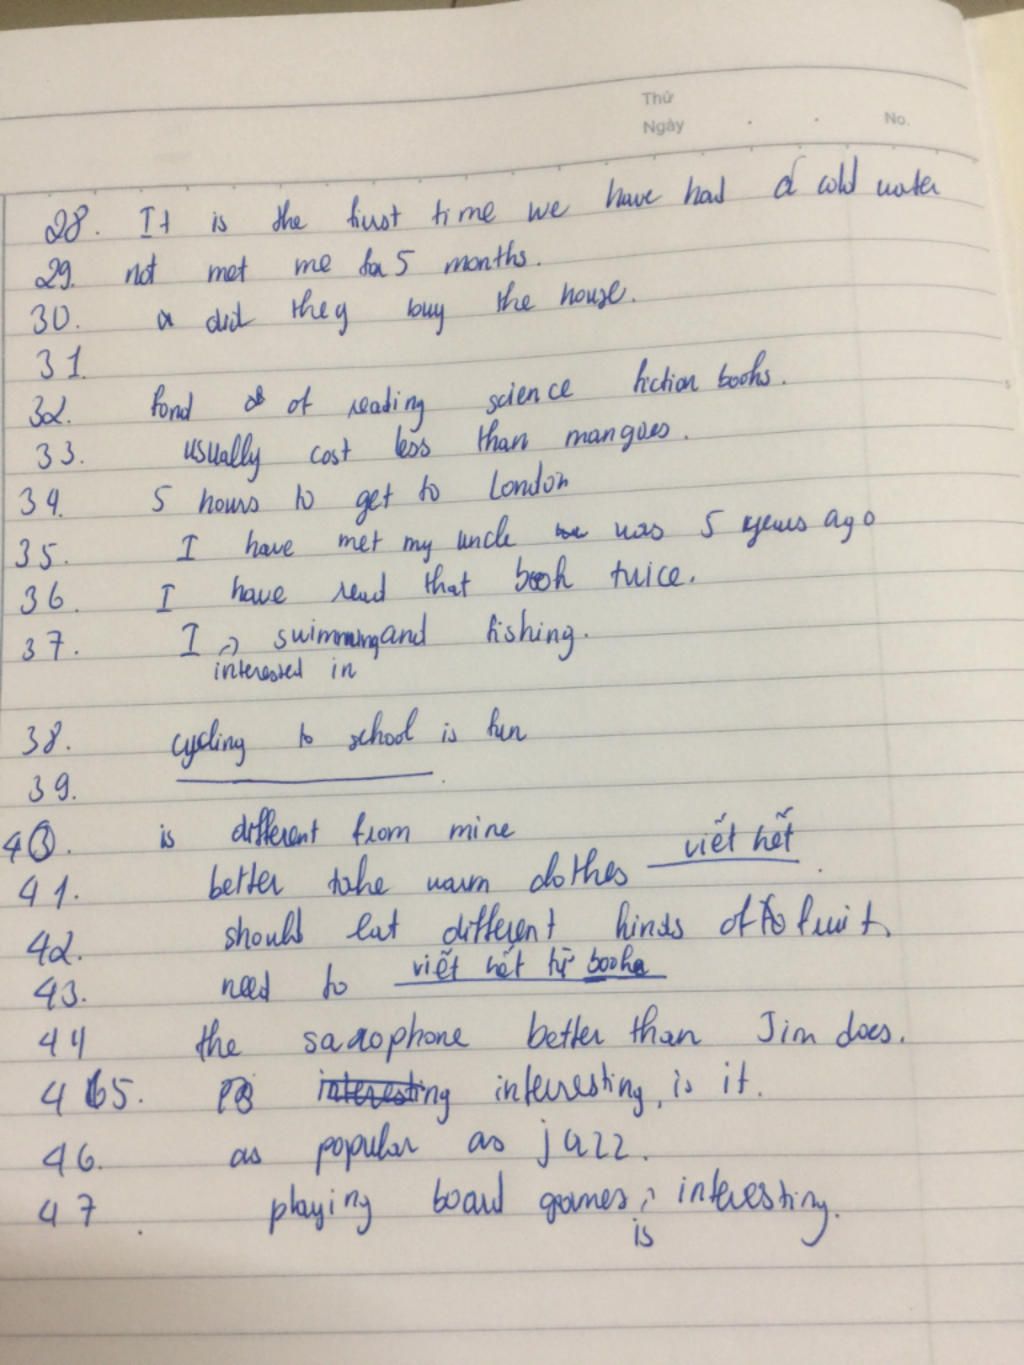 Thứ
Ngày . . No.
28. It is the first time we have had a cold water
29. not met me for 5 months.
30. did they buy the house.
31.
32. fond of reading science fiction books.
33. usually cost less than mangoes.
34. 5 hours to get to London
35. I have met my uncle was 5 years ago
36. I have read that book twice.
37. I swimming and fishing.
interested in
38. cycling to school is fun
39.
40. is different from mine
41. better take warm clothes viết hết
42. should eat different kinds of fruit.
43. need to viết hết từ books
44 the saxophone better than Jim does.
45. interesting interesting, is it.
46. as popular as jazz.
47. playing board games interesting.
is